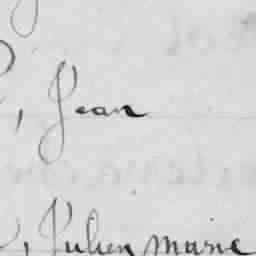 , Jean
, Julien Marie